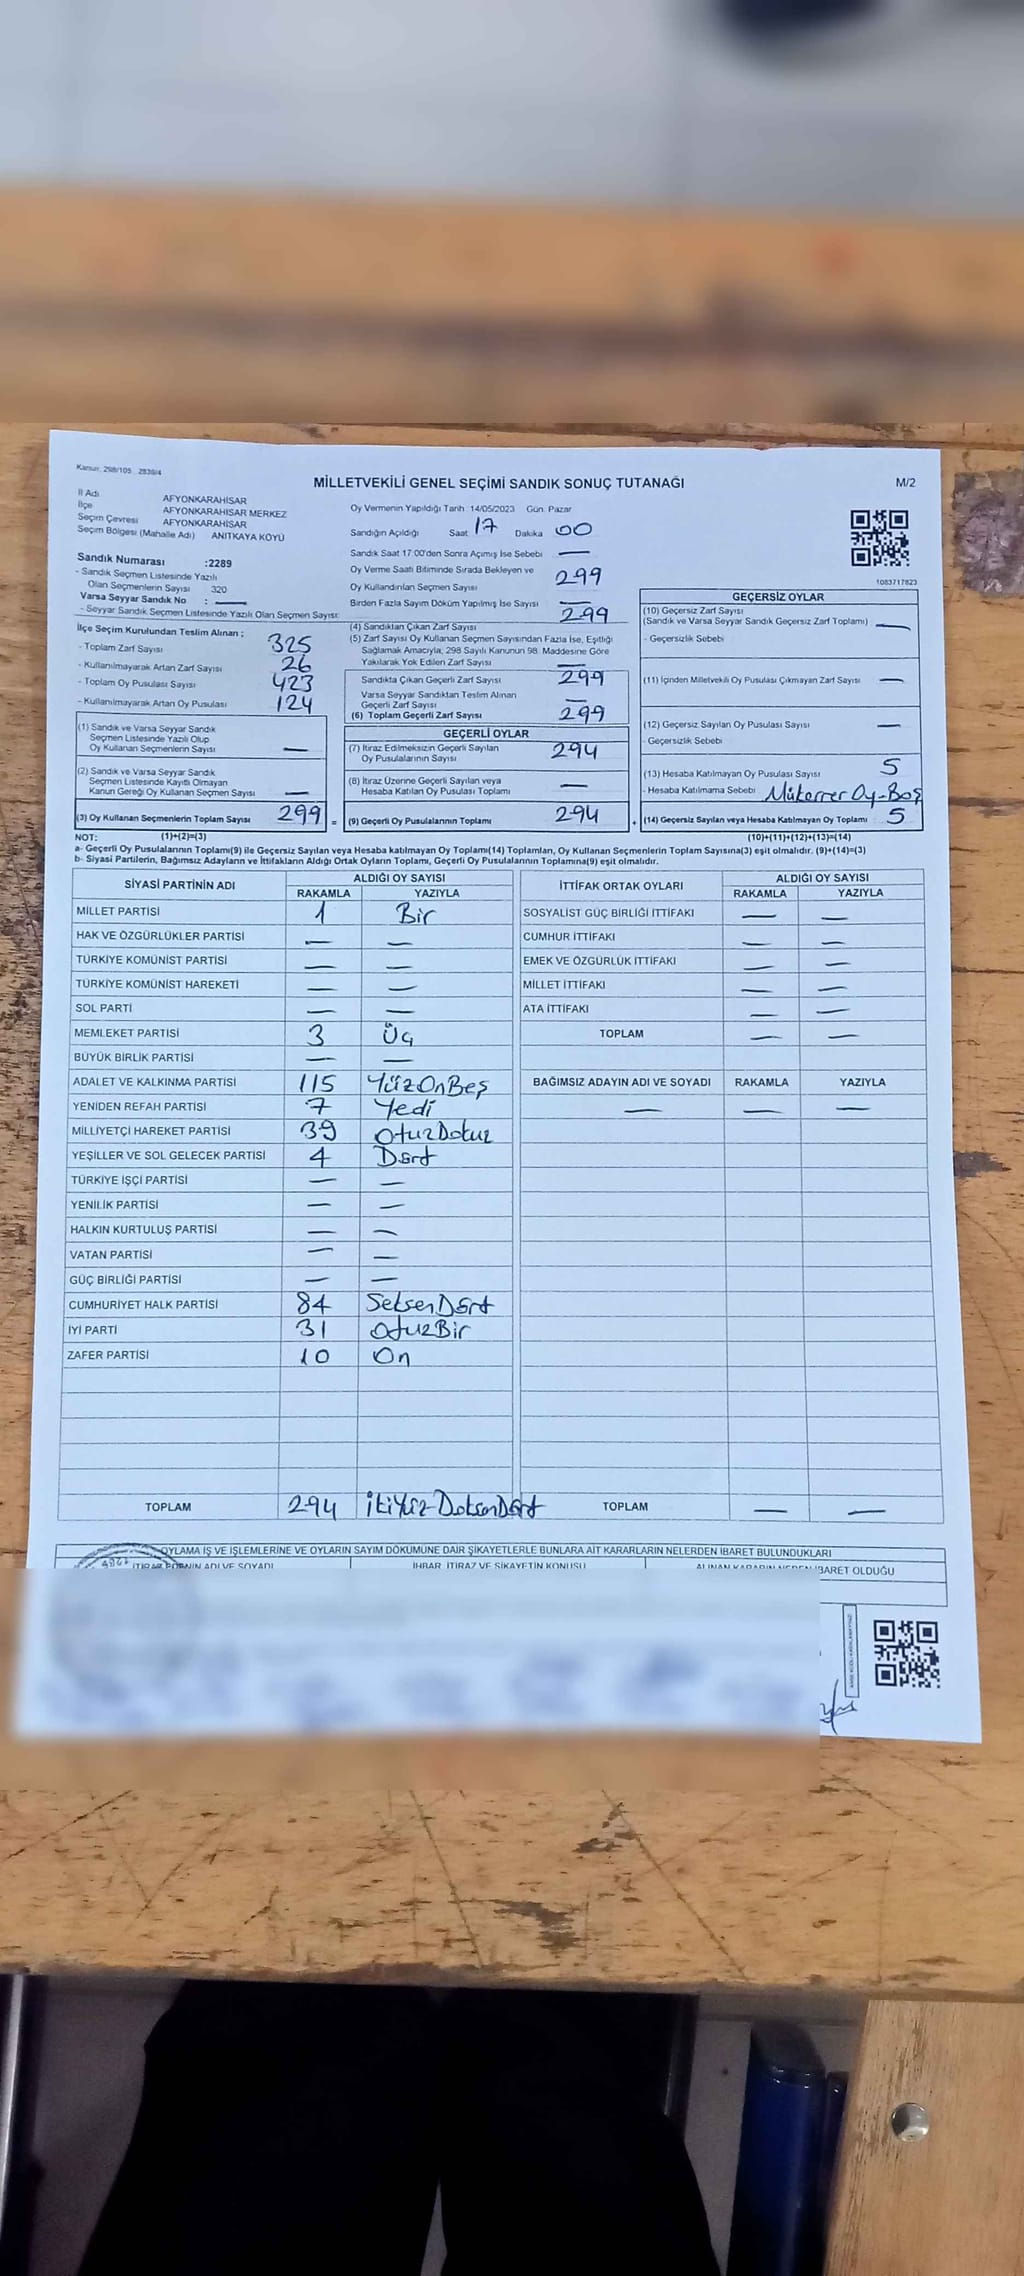 Kanun: 298/105 2839/4
MİLLETVEKİLİ GENEL SEÇİMİ SANDIK SONUÇ TUTANAĞI
M/2
İl Adı AFYONKARAHİSAR
İlçe AFYONKARAHİSAR MERKEZ
Seçim Çevresi AFYONKARAHİSAR
Seçim Bölgesi (Mahalle Adı) ANITKAYA KÖYÜ
Oy Vermenin Yapıldığı Tarih 14/05/2023 Gün: Pazar
Sandığın Açıldığı Saat 17 Dakika 00
Sandık Saat 17:00'den Sonra Açılmış İse Sebebi —
Oy Verme Saati Bitiminde Sırada Bekleyen ve
Oy Kullandırılan Seçmen Sayısı 299
Birden Fazla Sayım Döküm Yapılmış İse Sayısı —
1083717823
Sandık Numarası :2289
- Sandık Seçmen Listesinde Yazılı
Olan Seçmenlerin Sayısı 320
Varsa Seyyar Sandık No : —
- Seyyar Sandık Seçmen Listesinde Yazılı Olan Seçmen Sayısı:
İlçe Seçim Kurulundan Teslim Alınan :
- Toplam Zarf Sayısı 325
- Kullanılmayarak Artan Zarf Sayısı 26
- Toplam Oy Pusulası Sayısı 423
- Kullanılmayarak Artan Oy Pusulası 124
(1) Sandık ve Varsa Seyyar Sandık
Seçmen Listesinde Yazılı Olup
Oy Kullanan Seçmenlerin Sayısı —
(2) Sandık ve Varsa Seyyar Sandık
Seçmen Listesinde Kayıtlı Olmayan
Kanun Gereği Oy Kullanan Seçmen Sayısı —
(3) Oy Kullanan Seçmenlerin Toplam Sayısı 299 =
(4) Sandıktan Çıkan Zarf Sayısı 299
(5) Zarf Sayısı Oy Kullanan Seçmen Sayısından Fazla İse, Eşitliği
Sağlamak Amacıyla; 298 Sayılı Kanunun 98. Maddesine Göre
Yakılarak Yok Edilen Zarf Sayısı —
Sandıkta Çıkan Geçerli Zarf Sayısı 299
Varsa Seyyar Sandıktan Teslim Alınan
Geçerli Zarf Sayısı —
(6) Toplam Geçerli Zarf Sayısı 299
GEÇERLİ OYLAR
(7) İtiraz Edilmeksizin Geçerli Sayılan
Oy Pusulalarının Sayısı 294
(8) İtiraz Üzerine Geçerli Sayılan veya
Hesaba Katılan Oy Pusulası Toplamı —
(9) Geçerli Oy Pusulalarının Toplamı 294 +
GEÇERSİZ OYLAR
(10) Geçersiz Zarf Sayısı
(Sandık ve Varsa Seyyar Sandık Geçersiz Zarf Toplamı) —
- Geçersizlik Sebebi
(11) İçinden Milletvekili Oy Pusulası Çıkmayan Zarf Sayısı —
(12) Geçersiz Sayılan Oy Pusulası Sayısı —
- Geçersizlik Sebebi
(13) Hesaba Katılmayan Oy Pusulası Sayısı 5
- Hesaba Katılmama Sebebi Mükerrer Oy-Boş
(14) Geçersiz Sayılan veya Hesaba Katılmayan Oy Toplamı 5
NOT: (1)+(2)=(3) (10)+(11)+(12)+(13)=(14)
a- Geçerli Oy Pusulalarının Toplamı(9) ile Geçersiz Sayılan veya Hesaba katılmayan Oy Toplamı(14) Toplamları, Oy Kullanan Seçmenlerin Toplam Sayısına(3) eşit olmalıdır. (9)+(14)=(3)
b- Siyasi Partilerin, Bağımsız Adayların ve İttifakların Aldığı Ortak Oyların Toplamı, Geçerli Oy Pusulalarının Toplamına(9) eşit olmalıdır.
SİYASİ PARTİNİN ADI ALDIĞI OY SAYISI
RAKAMLA YAZIYLA
MİLLET PARTİSİ 1 Bir
HAK VE ÖZGÜRLÜKLER PARTİSİ — —
TÜRKİYE KOMÜNİST PARTİSİ — —
TÜRKİYE KOMÜNİST HAREKETİ — —
SOL PARTİ — —
MEMLEKET PARTİSİ 3 Üç
BÜYÜK BİRLİK PARTİSİ — —
ADALET VE KALKINMA PARTİSİ 115 YüzOnBeş
YENİDEN REFAH PARTİSİ 7 Yedi
MİLLİYETÇİ HAREKET PARTİSİ 39 OtuzDokuz
YEŞİLLER VE SOL GELECEK PARTİSİ 4 Dört
TÜRKİYE İŞÇİ PARTİSİ — —
YENİLİK PARTİSİ — —
HALKIN KURTULUŞ PARTİSİ — —
VATAN PARTİSİ — —
GÜÇ BİRLİĞİ PARTİSİ — —
CUMHURİYET HALK PARTİSİ 84 SeksenDört
İYİ PARTİ 31 OtuzBir
ZAFER PARTİSİ 10 On
TOPLAM 294 İkiYüz-DoksanDört
İTTİFAK ORTAK OYLARI ALDIĞI OY SAYISI
RAKAMLA YAZIYLA
SOSYALİST GÜÇ BİRLİĞİ İTTİFAKI — —
CUMHUR İTTİFAKI — —
EMEK VE ÖZGÜRLÜK İTTİFAKI — —
MİLLET İTTİFAKI — —
ATA İTTİFAKI — —
TOPLAM — —
BAĞIMSIZ ADAYIN ADI VE SOYADI RAKAMLA YAZIYLA
— — —
TOPLAM — —
OYLAMA İŞ VE İŞLEMLERİNE VE OYLARIN SAYIM DÖKÜMÜNE DAİR ŞİKAYETLERLE BUNLARA AİT KARARLARIN NELERDEN İBARET BULUNDUKLARI
İTİRAZ EDENİN ADI VE SOYADI İHBAR, İTİRAZ VE ŞİKAYETİN KONUSU ALINAN KARARIN NEDEN İBARET OLDUĞU